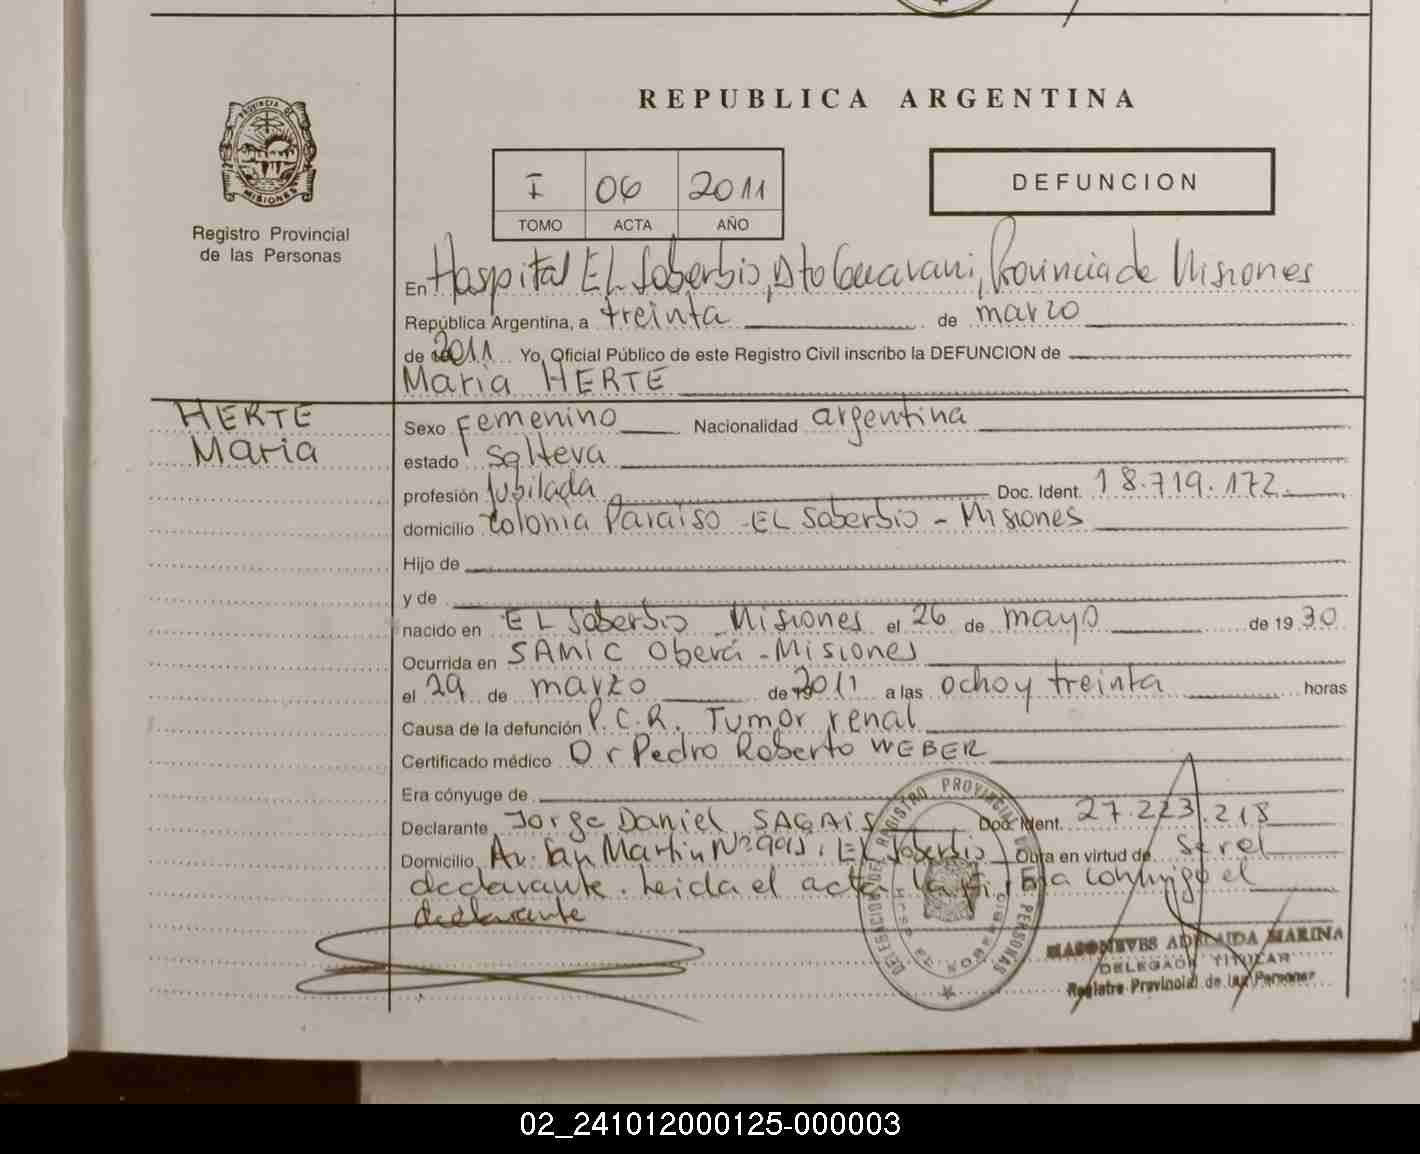 REPUBLICA ARGENTINA
PROVINCIA DE
MISIONES
Registro Provincial
de las Personas
I 06 2011
TOMO ACTA AÑO
DEFUNCION
En Hospital EL Soberbio, Dto Guarani, Provincia de Misiones
República Argentina, a treinta de marzo
de 2011 Yo, Oficial Público de este Registro Civil inscribo la DEFUNCION de
Maria HERTE
HERTE
Maria
Sexo Femenino Nacionalidad argentina
estado soltera
profesión Jubilada Doc. Ident. 18.719.172
domicilio Colonia Paraiso - EL Soberbio - Misiones
Hijo de
y de
nacido en EL Soberbio Misiones el 26 de mayo de 1930
Ocurrida en SAMIC Oberá - Misiones
el 29 de marzo de 2011 a las ocho y treinta horas
Causa de la defunción P.C.R. Tumor renal
Certificado médico Dr Pedro Roberto WEBER
Era cónyuge de
Declarante Jorge Daniel SAGAIS Doc. Ident. 27.223.218
Domicilio Av. San Martin Nº 995, EL Soberbio Obra en virtud de Ser el
declarante. Leida el acta la firma conmigo el
declarante
MASONEVES ADELAIDA MARINA
DELEGADA TITULAR
Registro Provincial de las Personas
02_241012000125-000003